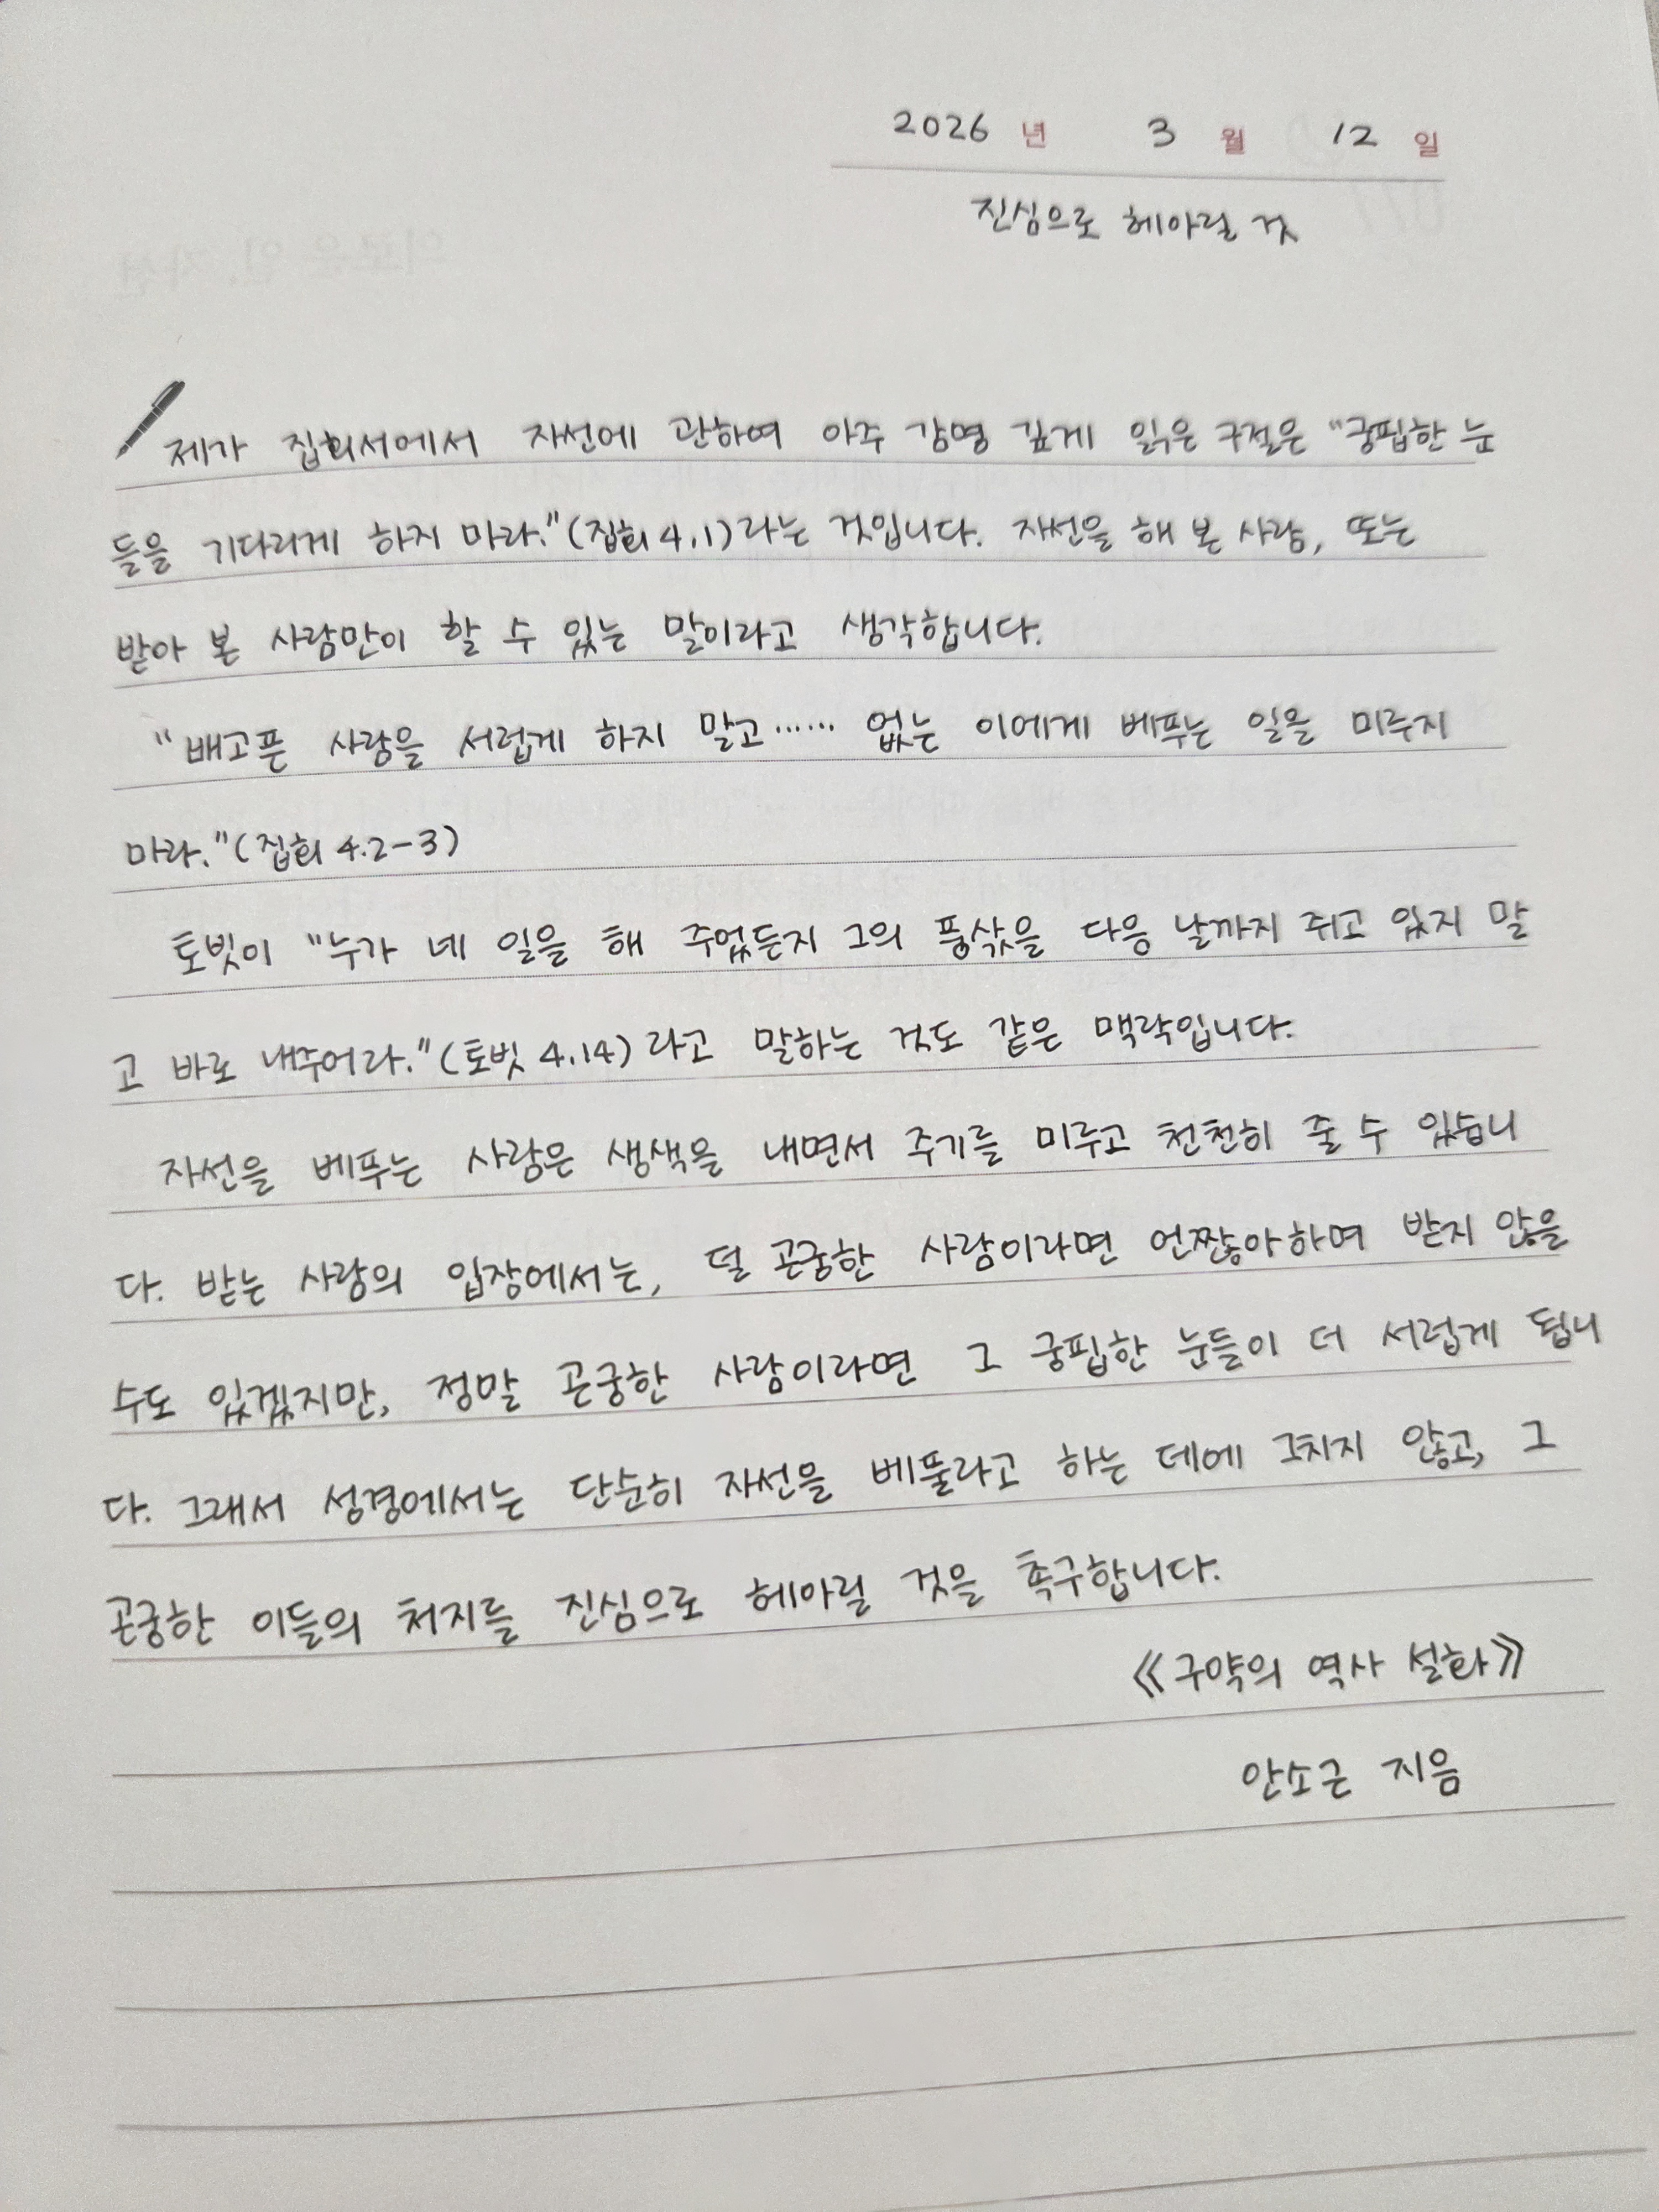 2026 년 3 월 12 일
진심으로 헤아릴 것
제가 집회서에서 자선에 관하여 아주 감명 깊게 읽은 구절은 "궁핍한 눈
들을 기다리게 하지 마라."(집회 4.1)라는 것입니다. 자선을 해 본 사람, 또는
받아 본 사람만이 할 수 있는 말이라고 생각합니다.
"배고픈 사람을 서럽게 하지 말고…… 없는 이에게 베푸는 일을 미루지
마라."(집회 4.2-3)
토빗이 "누가 네 일을 해 주었든지 그의 품삯을 다음 날까지 쥐고 있지 말
고 바로 내주어라."(토빗 4.14)라고 말하는 것도 같은 맥락입니다.
자선을 베푸는 사람은 생색을 내면서 주기를 미루고 천천히 줄 수 있습니
다. 받는 사람의 입장에서는, 덜 곤궁한 사람이라면 언짢아하며 받지 않을
수도 있겠지만, 정말 곤궁한 사람이라면 그 궁핍한 눈들이 더 서럽게 됩니
다. 그래서 성경에서는 단순히 자선을 베풀라고 하는 데에 그치지 않고, 그
곤궁한 이들의 처지를 진심으로 헤아릴 것을 촉구합니다.
《구약의 역사 설화》
안소근 지음